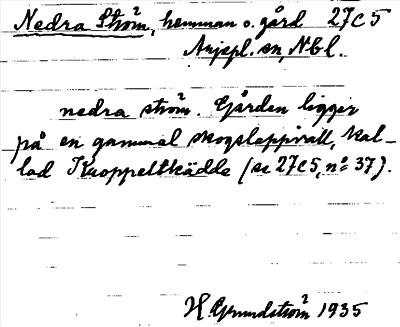 Nedra Ström, hemman o. gård 27C5
Arjepl. sn, Nbl.
nedra ström. Gården ligger
på en gammal skogslappvall, kal-
lad Kuoppeltkädde (se 27C5, no 37).
H. Grundström 1935